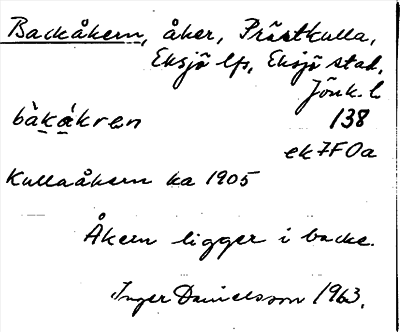 Backåkern, åker, Prästkulla,
Eksjö lfs, Eksjö stad,
Jönk. l
bàkåkren 138
ek7F0a
Kullaåkern ka 1905
Åkern ligger i backe.
Inger Danielsson 1963.